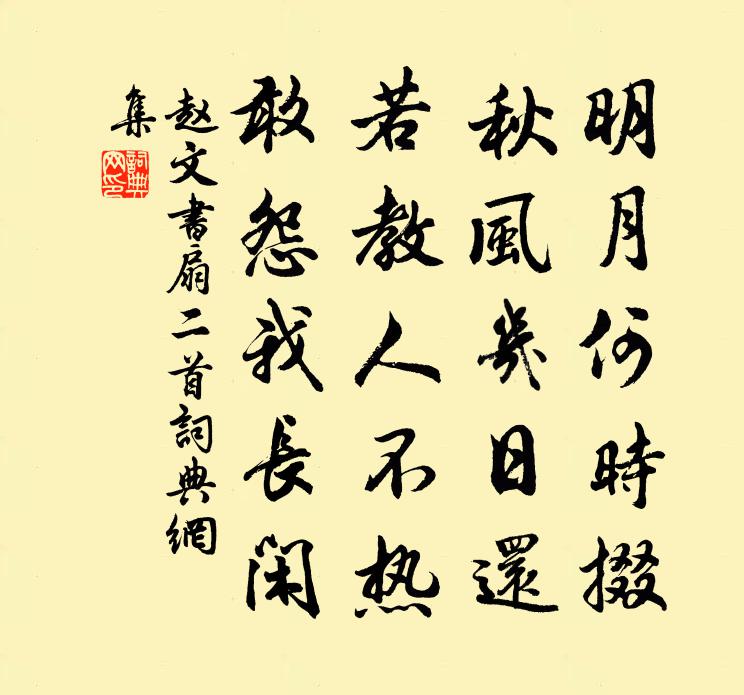 明月何时掇
秋風幾日還
若教人不热
敢怨我長闲
赵文書扇二首詞典網
集
詞典网印